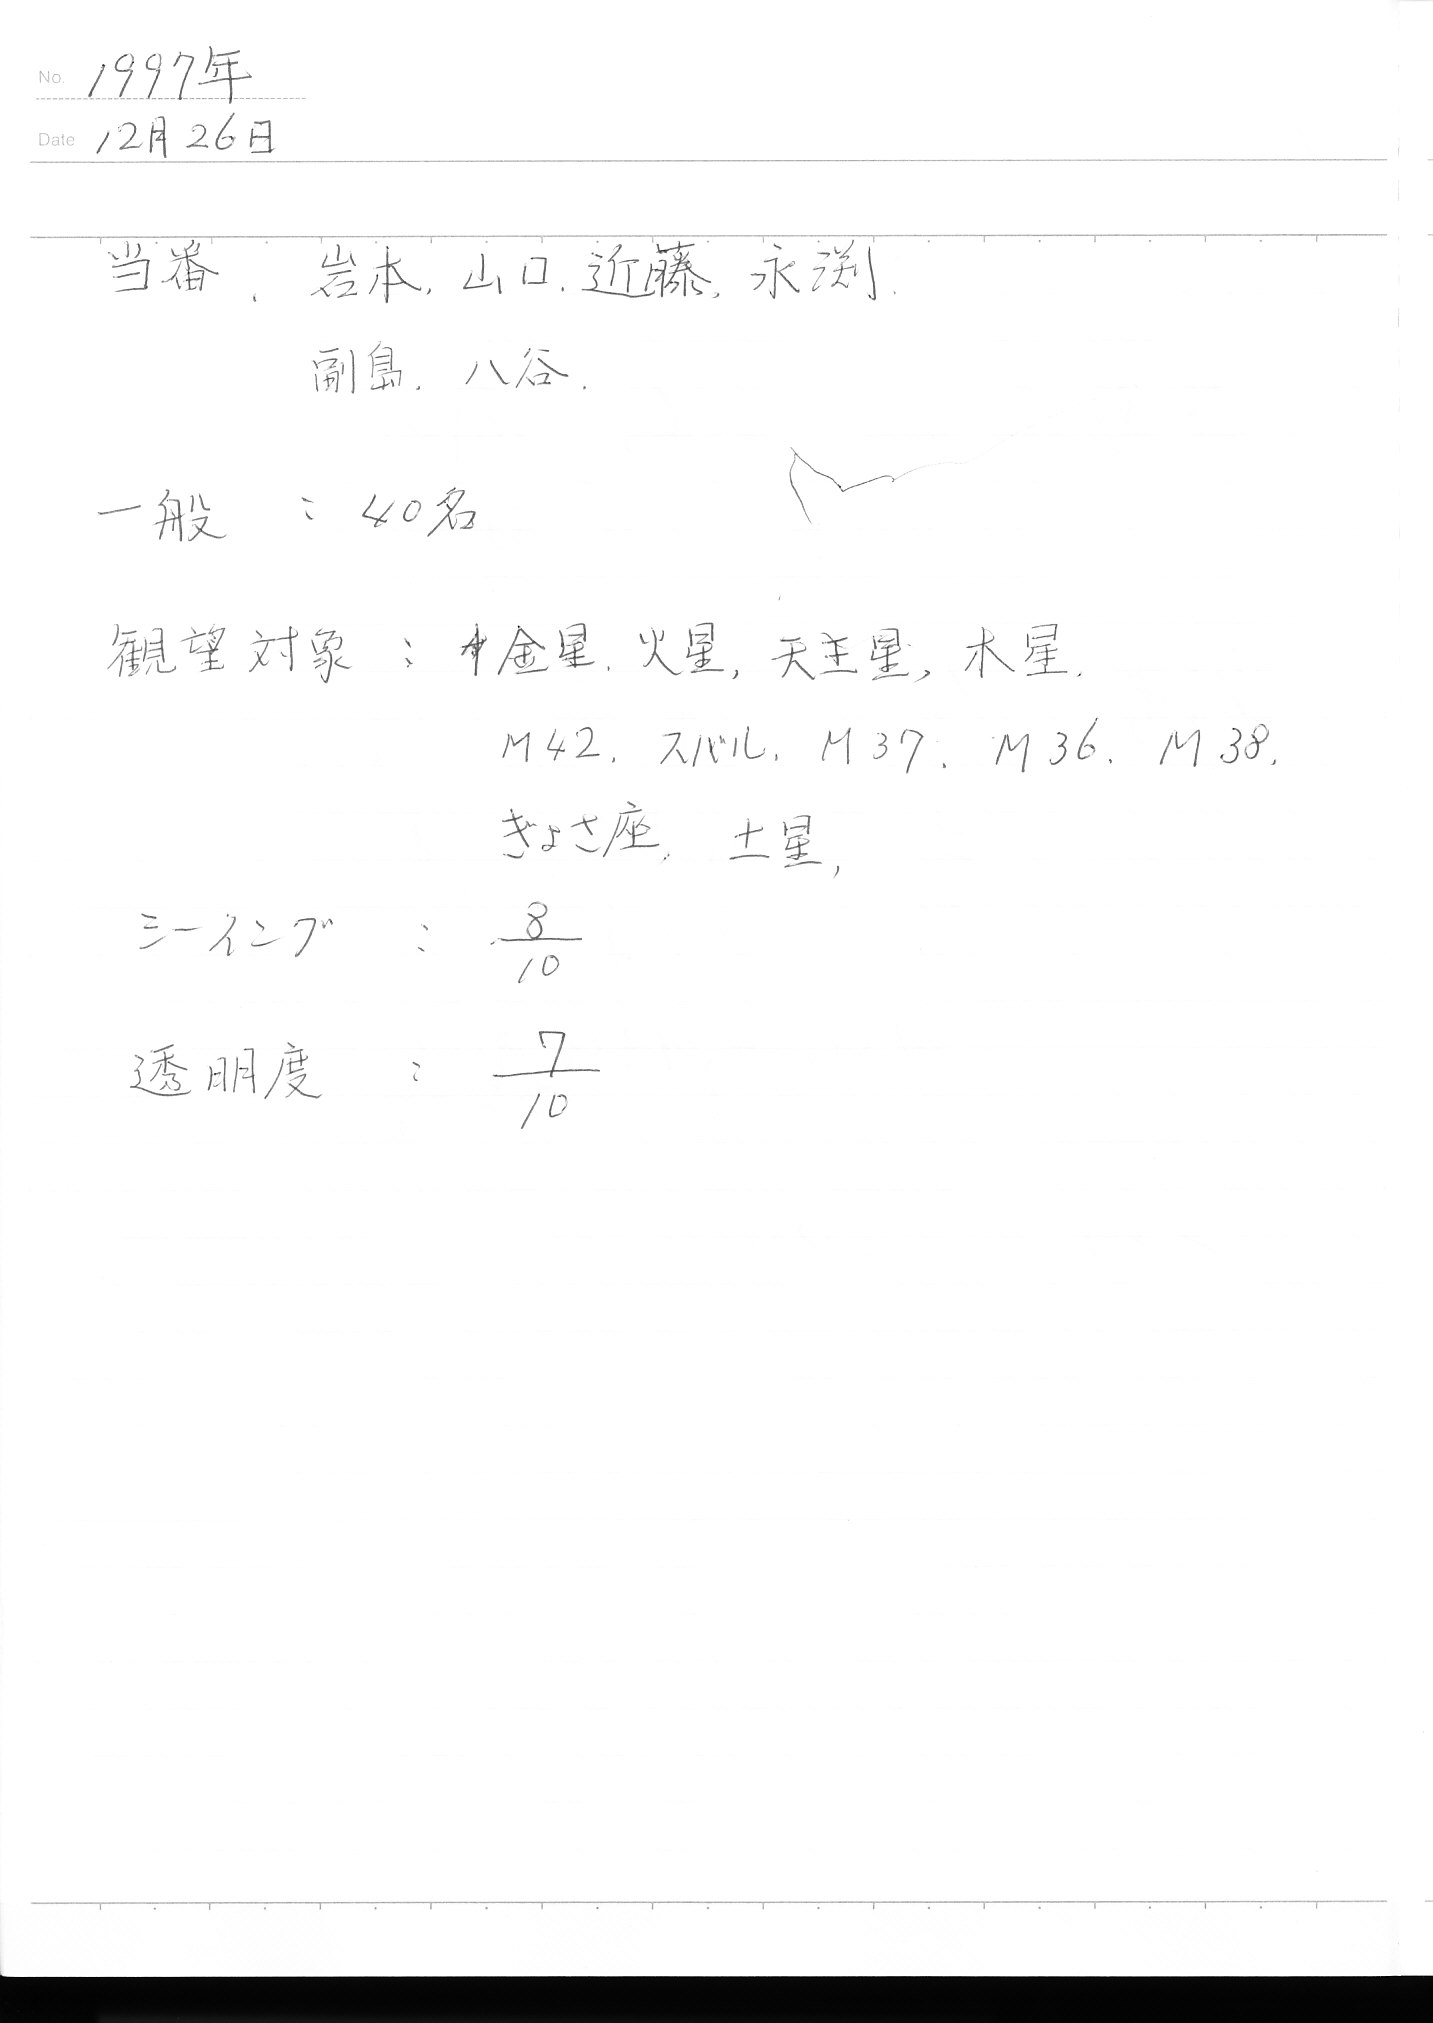 No. 1997年
Date 12月26日
当番. 岩本. 山口. 近藤. 永渕.
副島. 八谷.
一般 : 40名
観望対象 : 金星. 火星, 天王星, 木星.
M42. スバル. M37. M36. M38.
ぎょさ座. 土星,
シーイング : 8/10
透明度 : 7/10